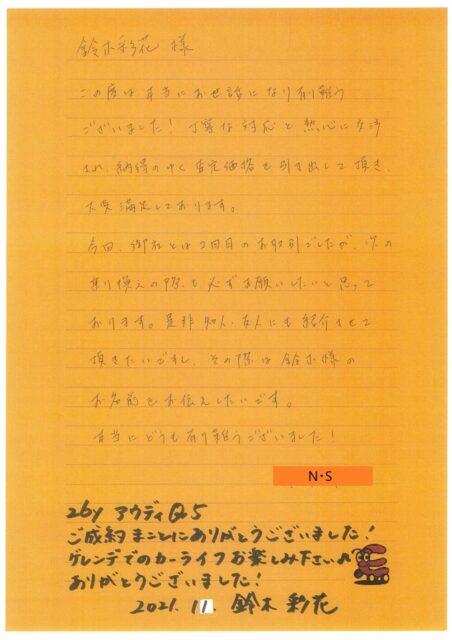 鈴木彩花 様
この度は本当にお世話になり有り難う
ございました! 丁寧な対応と熱心に交渉
され、納得のゆく査定価格を引き出して頂き、
大変満足しております。
今回、御社とは2回目のお取引でしたが、次の
乗り換えの際も必ずお願いしたいと思って
おります。是非知人、友人にも紹介させて
頂きたいですし、その際は鈴木様の
お名前をお伝えしたいです。
本当にどうも有り難うございました!
N・S
26y アウディQ5
ご成約まことにありがとうございました!
ゲレンデでのカーライフお楽しみ下さい♪
ありがとうございました!
2021.11. 鈴木 彩花